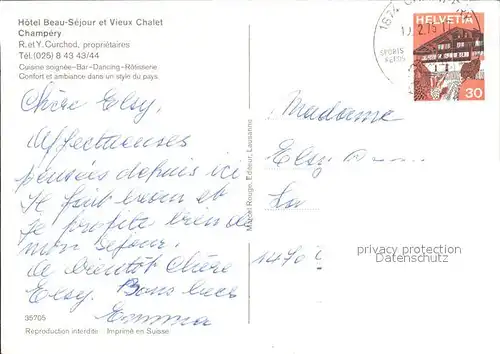 Hôtel Beau-Séjour et Vieux Chalet
Champéry
R. et Y. Curchod, propriétaires
Tél. (025) 8 43 43/44
Cuisine soignée-Bar-Dancing-Rôtisserie
Confort et ambiance dans un style du pays.
Chère Elsy,
Affectueuses
pensées depuis ici
Il fait bon et
je profite bien de
mon séjour.
A bientôt chère
Elsy. Bons becs
Emma
35705
Reproduction interdite Imprimé en Suisse
Marcel Rouge, Editeur, Lausanne
1874
SPORTS
HELVETIA
30
Madame
Elsy
1470
privacy protection
Datenschutz